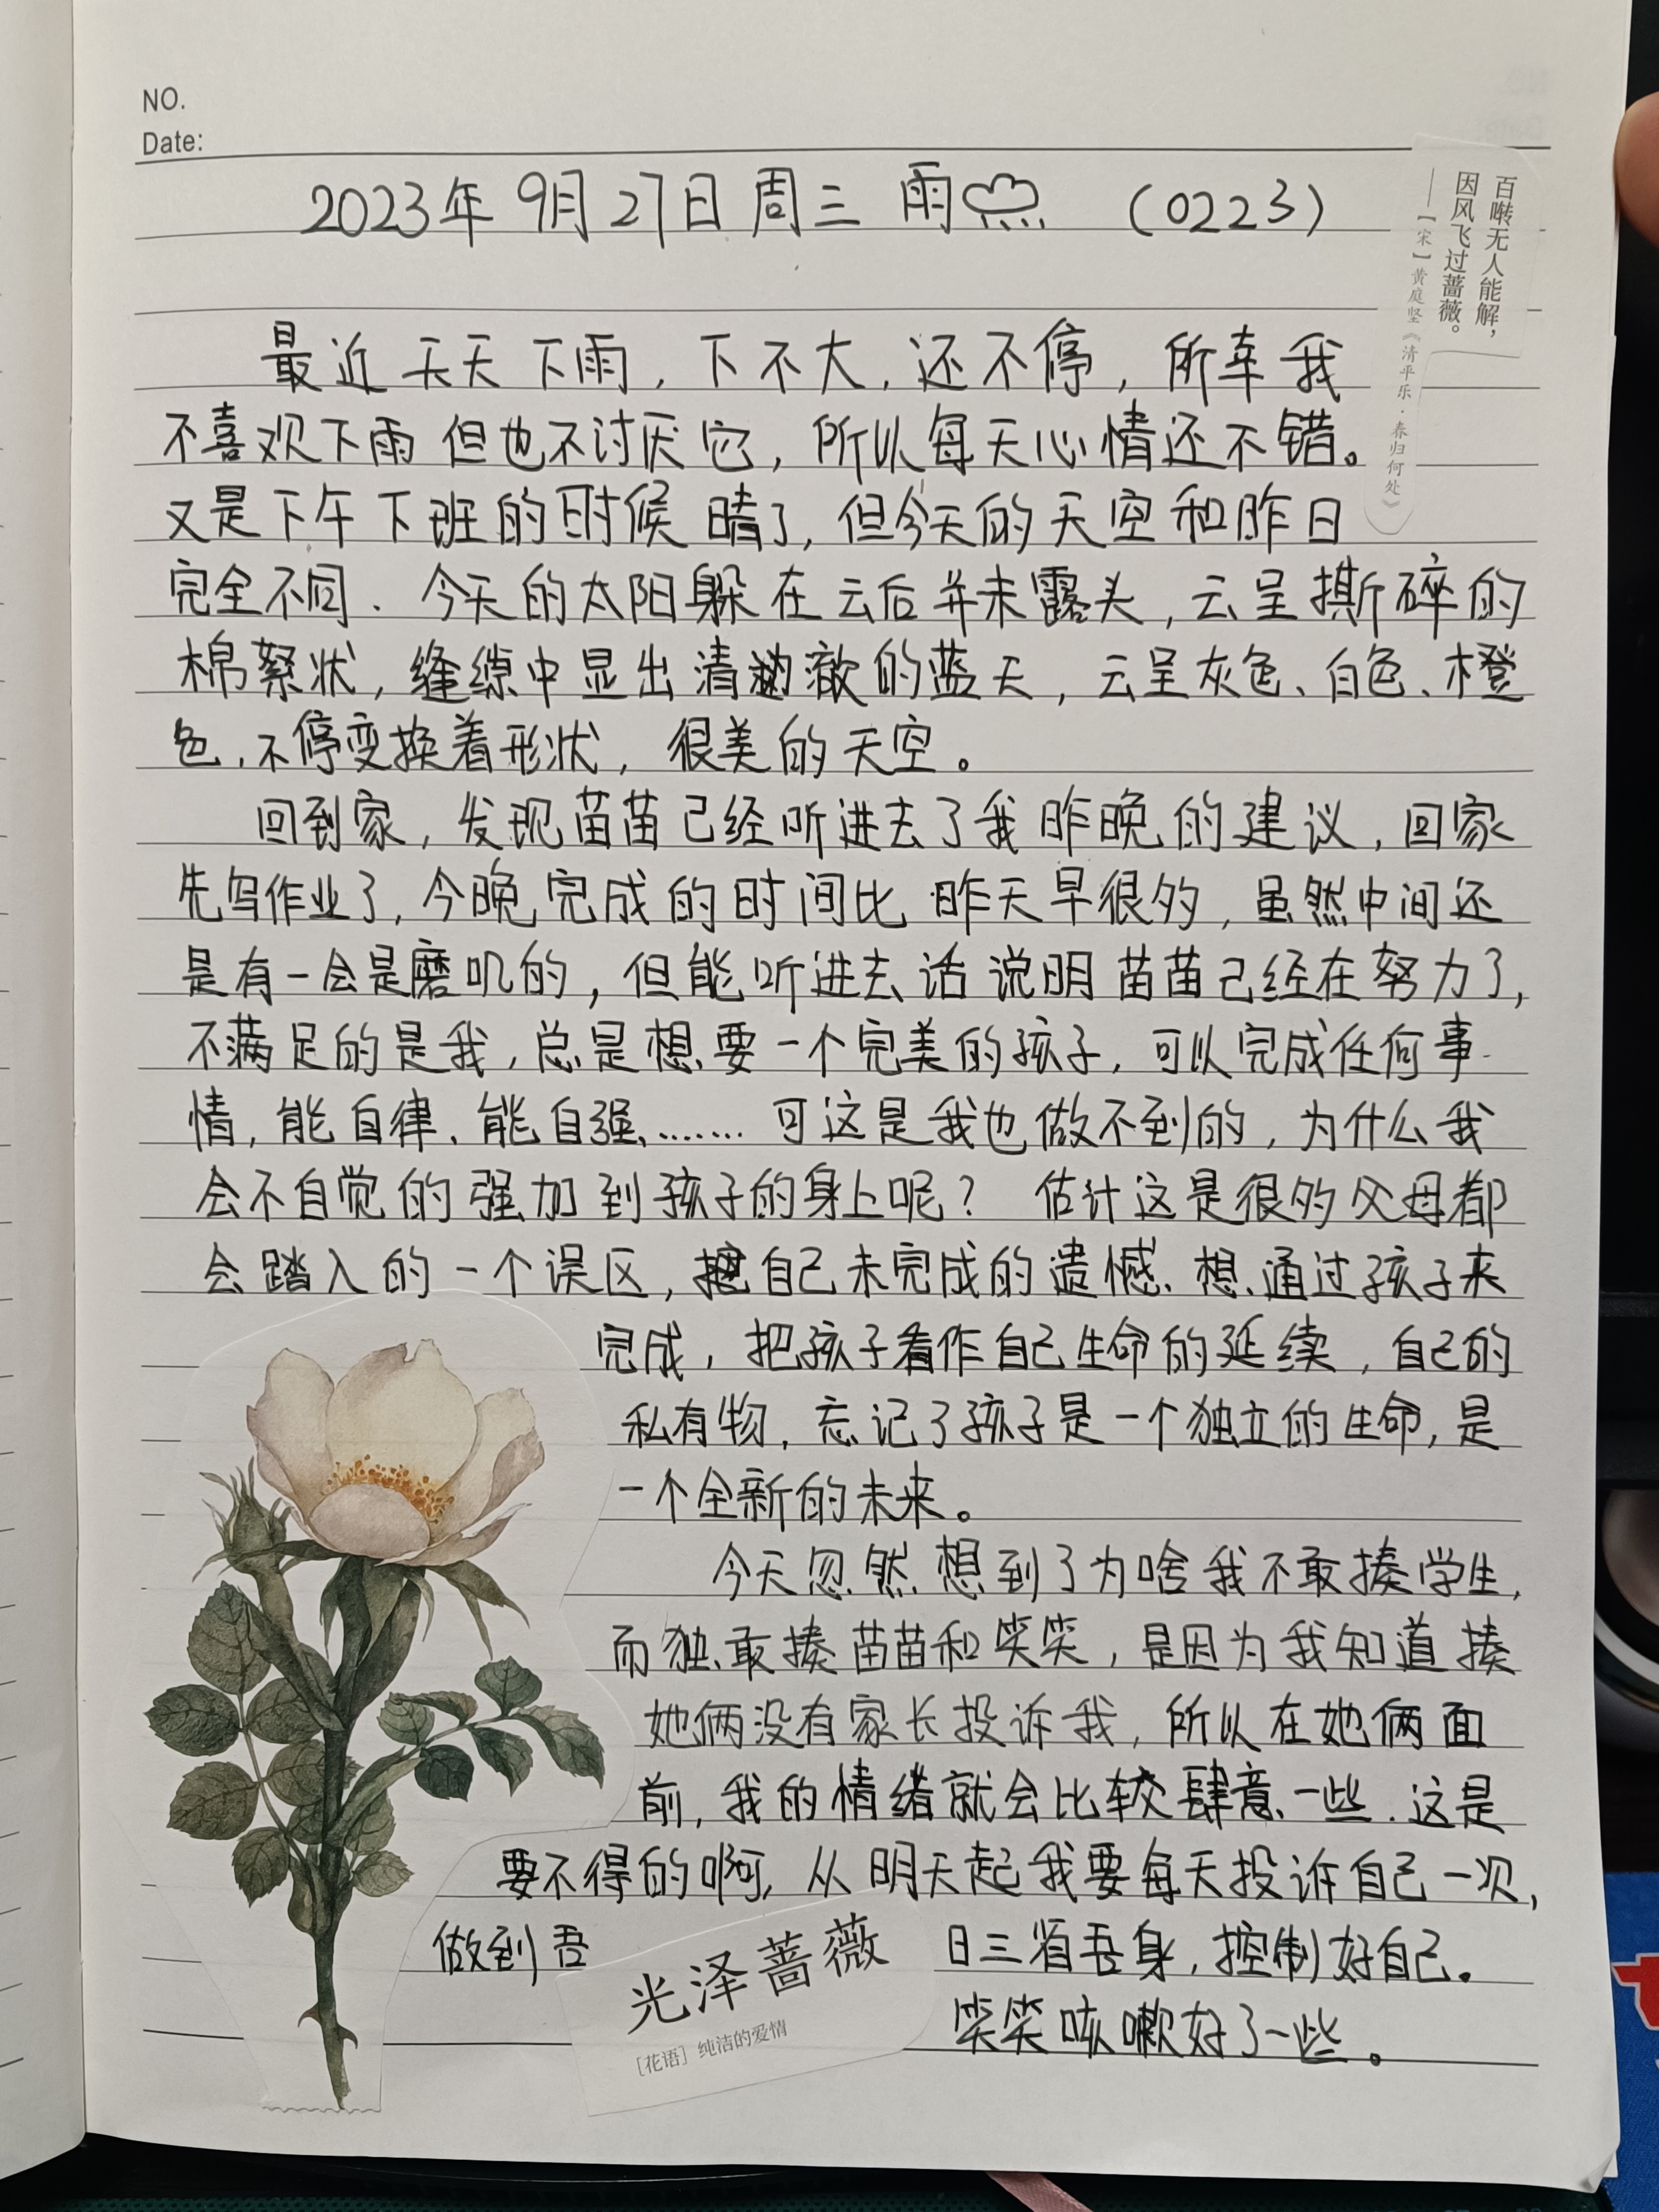 NO.
Date:
2023年9月27日 周三 雨 (0223)
百啭无人能解，
因风飞过蔷薇。
——【宋】黄庭坚《清平乐·春归何处》
最近天天下雨，下不大，还不停，所幸我
不喜欢下雨但也不讨厌它，所以每天心情还不错。
又是下午下班的时候晴了，但今天的天空和昨日
完全不同．今天的太阳躲在云后并未露头，云呈撕碎的
棉絮状，缝缭中显出清澈的蓝天，云呈灰色、白色、橙
色，不停变换着形状，很美的天空。
回到家，发现苗苗已经听进去了我昨晚的建议，回家
先写作业了，今晚完成的时间比昨天早很多，虽然中间还
是有一会是磨叽的，但能听进去话说明苗苗已经在努力了，
不满足的是我，总是想要一个完美的孩子，可以完成任何事
情，能自律、能自强、…… 可这是我也做不到的，为什么我
会不自觉的强加到孩子的身上呢？ 估计这是很多父母都
会踏入的一个误区，把自己未完成的遗憾，想通过孩子来
完成，把孩子看作自己生命的延续，自己的
私有物，忘记了孩子是一个独立的生命，是
一个全新的未来。
今天忽然想到了为啥我不敢揍学生，
而独敢揍苗苗和笑笑，是因为我知道揍
她俩没有家长投诉我，所以在她俩面
前，我的情绪就会比较肆意一些．这是
要不得的啊，从明天起我要每天投诉自己一次，
做到吾日三省吾身，控制好自己。
笑笑咳嗽好了一些。
光泽蔷薇
［花语］纯洁的爱情